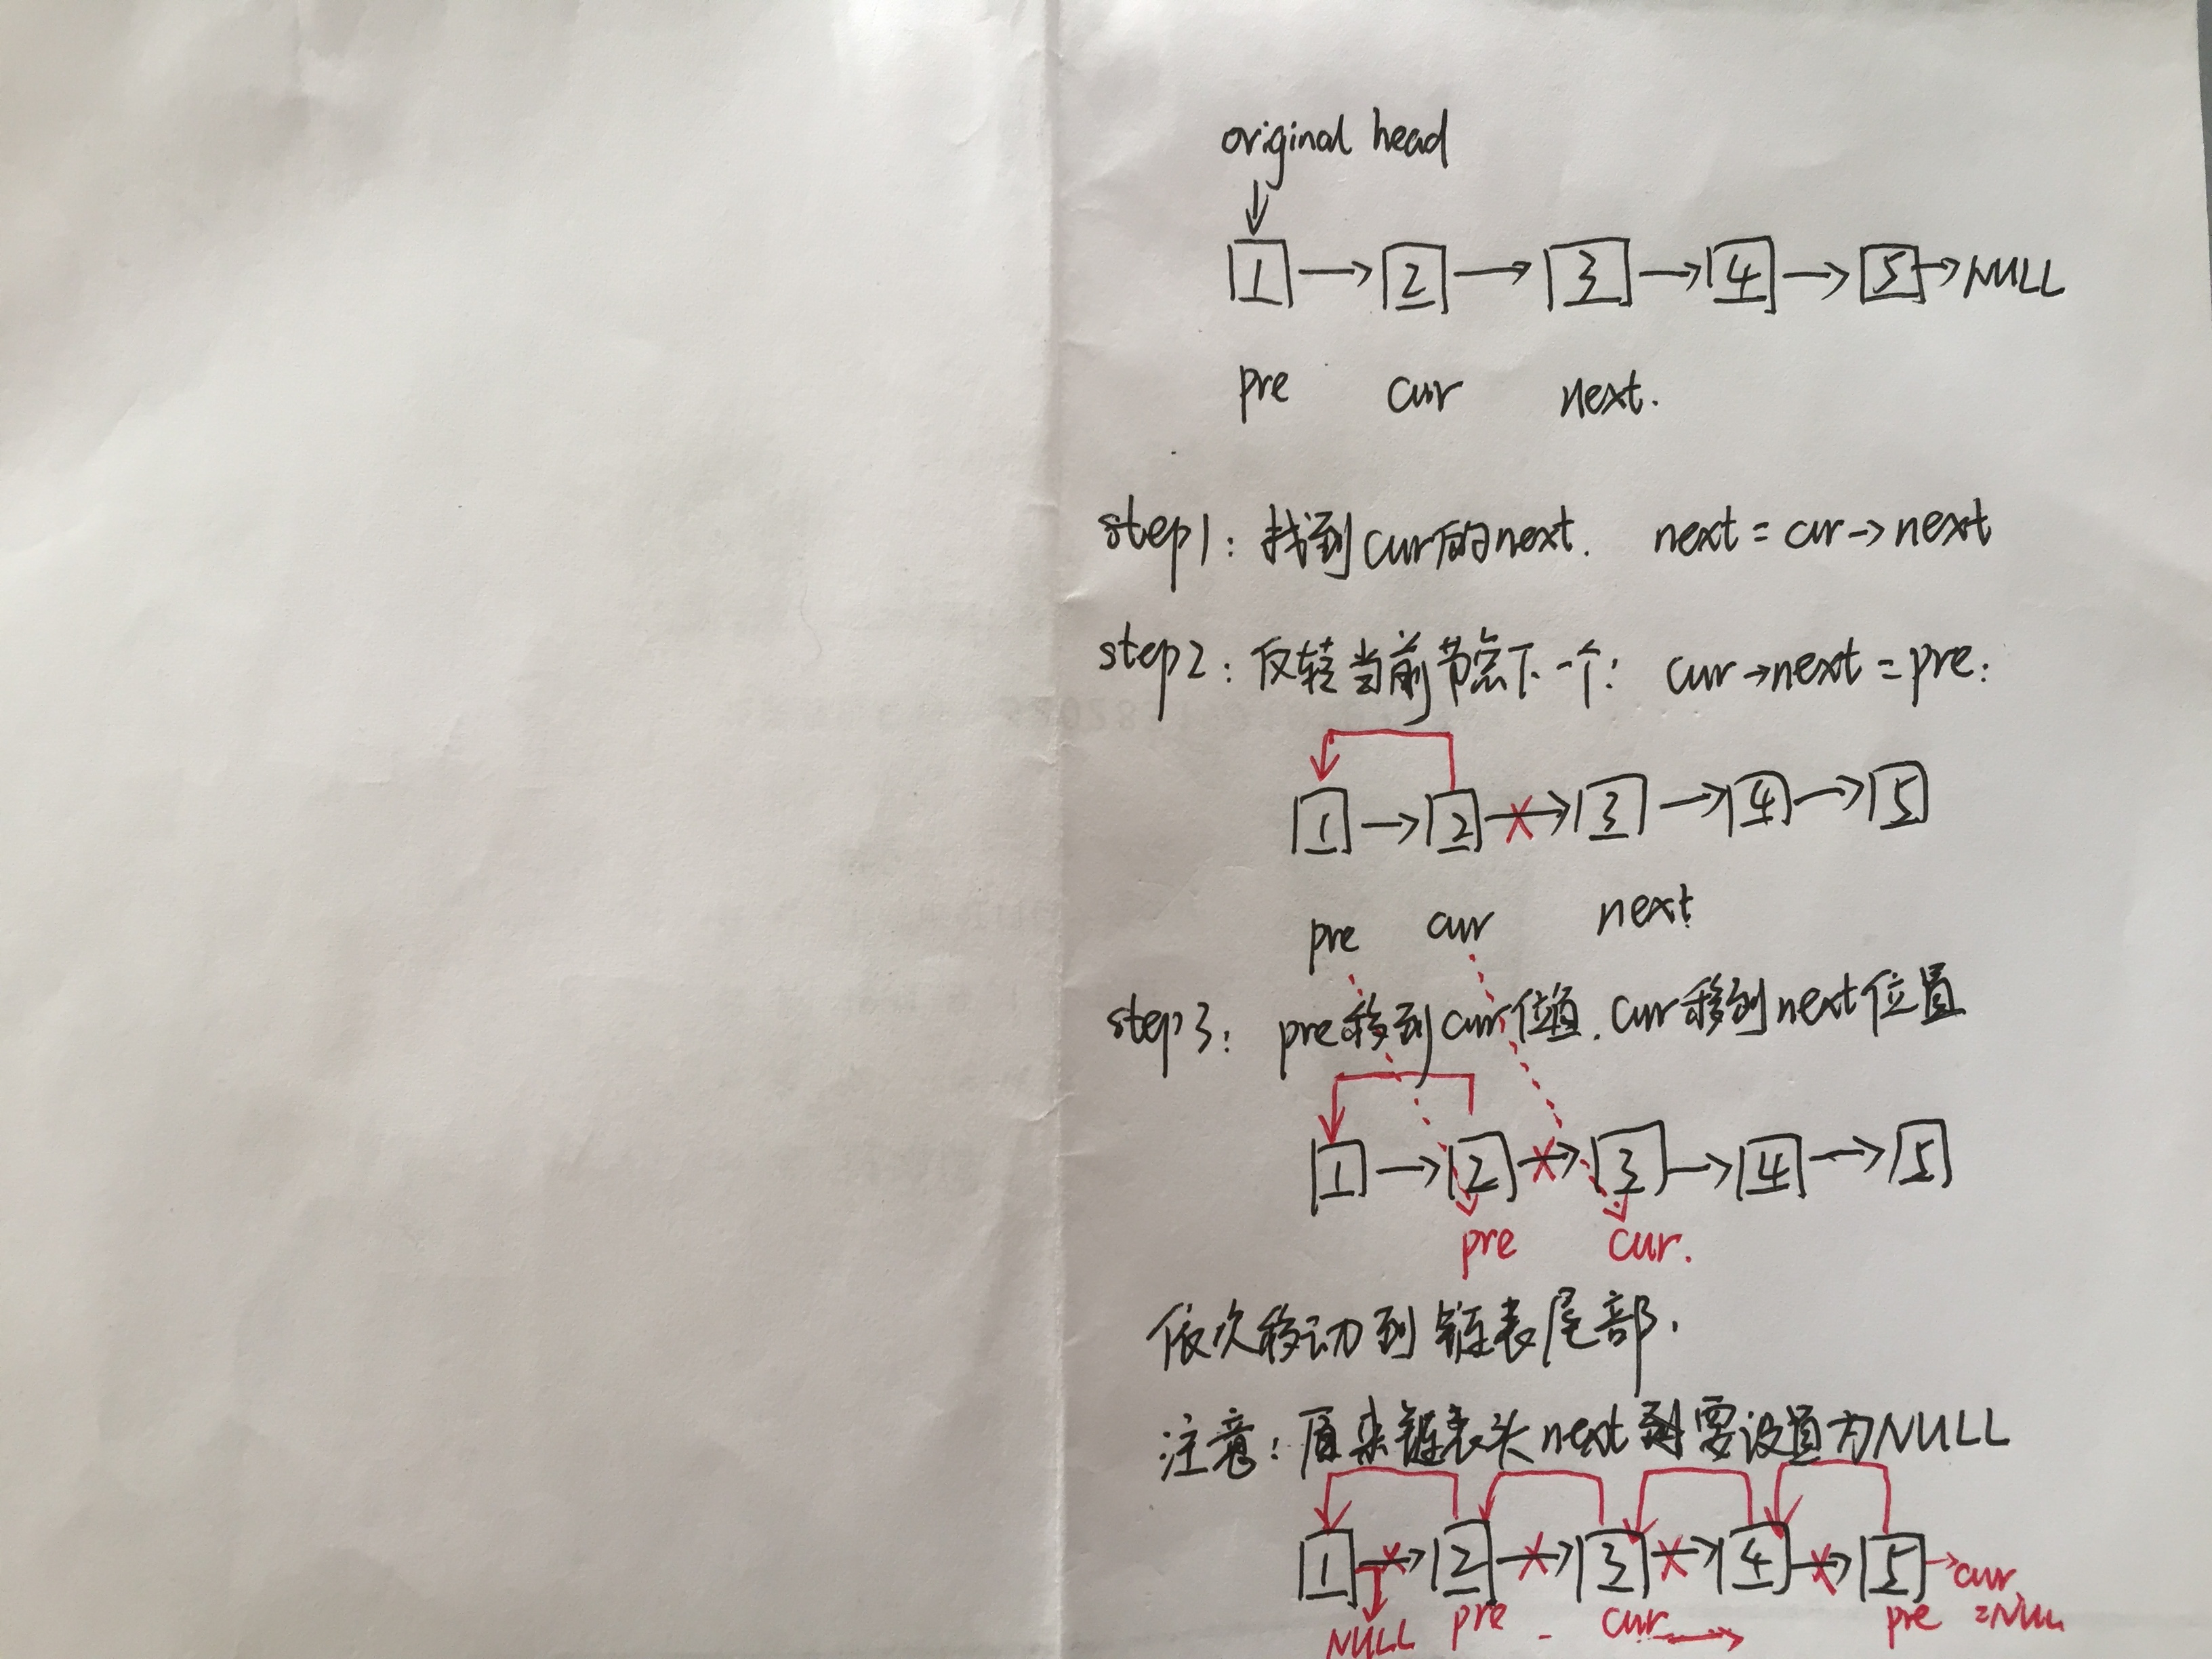 original head
1 → 2 → 3 → 4 → 5 → NULL
pre cur next.
step1: 找到cur的next. next = cur → next
step2: 反转当前节点下一个: cur → next = pre:
1 → 2 → 3 → 4 → 5
pre cur next
step3: pre移到cur位置. cur移到next位置
1 → 2 → 3 → 4 → 5
pre cur.
依次移动到链表尾部.
注意: 原来链表头next 要设置为NULL
1 → 2 → 3 → 4 → 5 → cur
NULL pre - cur → pre =NULL